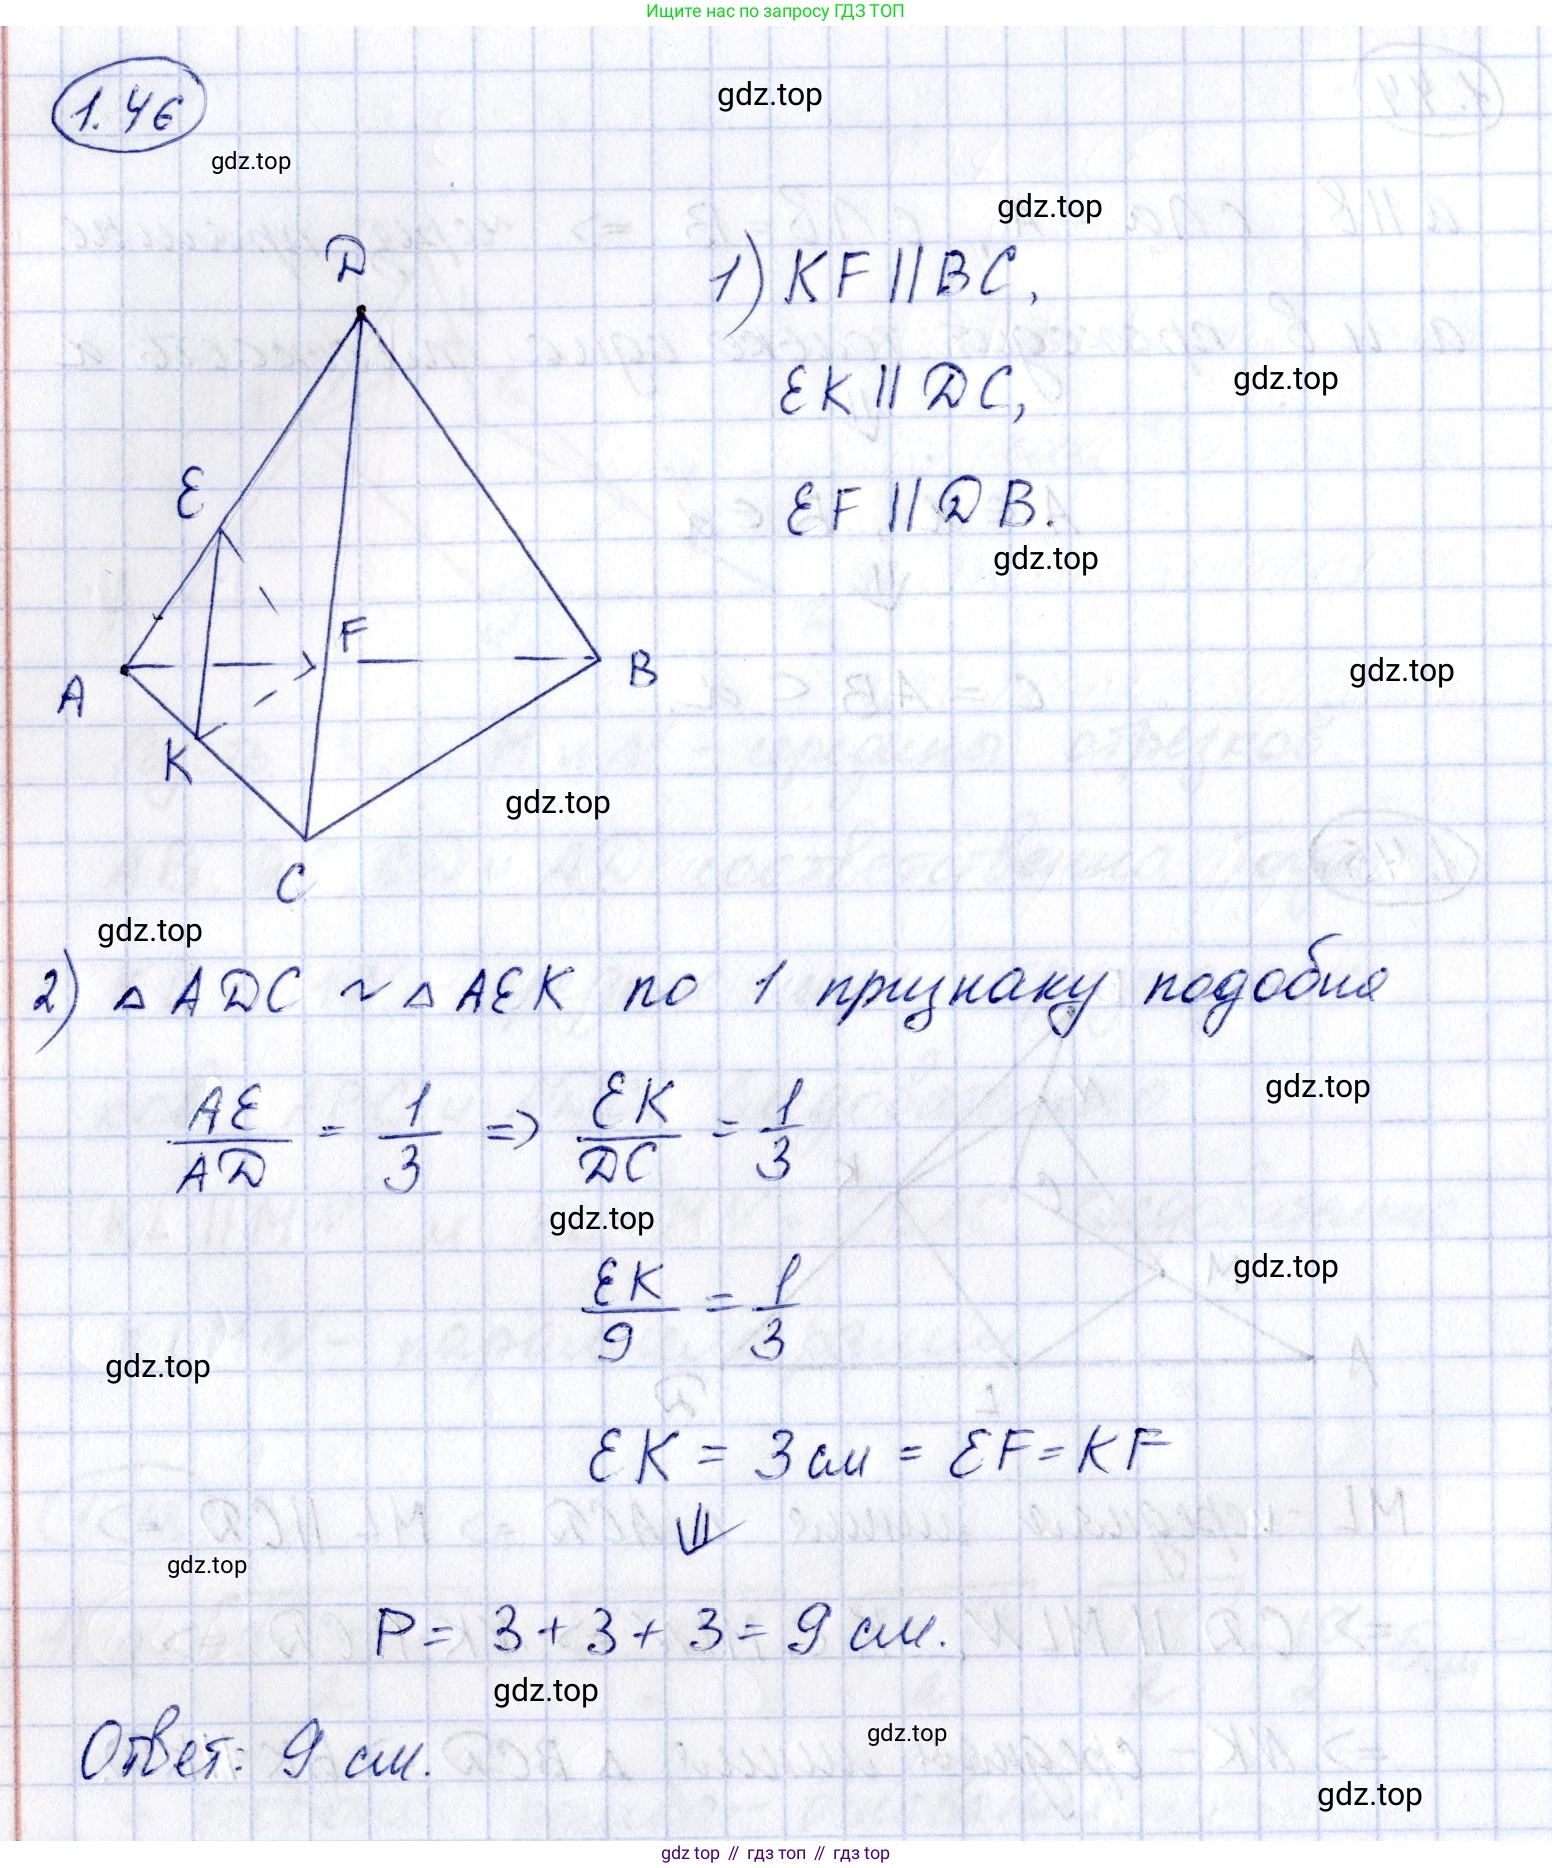 Ищите нас по запросу ГДЗ ТОП
1.46
gdz.top
gdz.top
gdz.top
D
1) KF || BC,
EK || DC,
gdz.top
E
EF || DB.
gdz.top
F
A
B
gdz.top
K
gdz.top
C
gdz.top
2) △ ADC ~ △ AEK по 1 признаку подобия
AE/AD = 1/3 => EK/DC = 1/3
gdz.top
gdz.top
EK/9 = 1/3
gdz.top
gdz.top
EK = 3 см = EF = KF
⇓
gdz.top
P = 3 + 3 + 3 = 9 см.
gdz.top
gdz.top
Ответ: 9 см.
gdz.top
gdz.top // гдз топ // гдз top